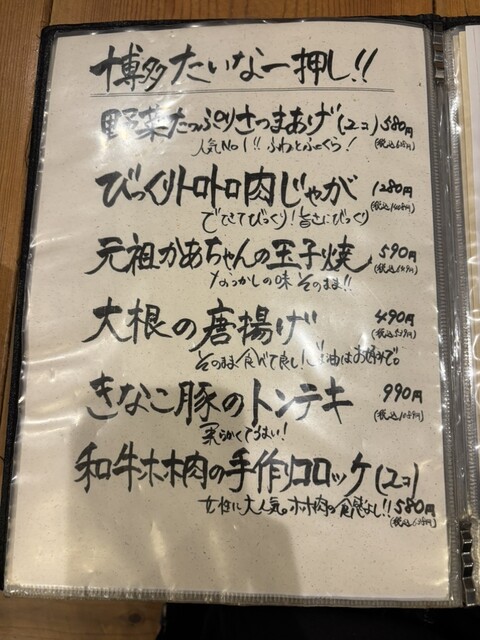 博多たいな一押し!!
野菜たっぷりさつまあげ(2コ) 580円
人気No1!! ふわとふっくら! (税込638円)
びっくりトロトロ肉じゃが 1280円
でてきてびっくり!旨さにびっくり (税込1408円)
元祖かあちゃんの玉子焼 590円
なつかしの味そのまま!! (税込649円)
大根の唐揚げ 490円
そのまま食べて良し!醤油はお好みで。 (税込539円)
きなこ豚のトンテキ 990円
柔らかくてうまい! (税込1089円)
和牛ホホ肉の手作りコロッケ(2コ)
女性に大人気。ホホ肉の食感よし!! 580円
(税込638円)